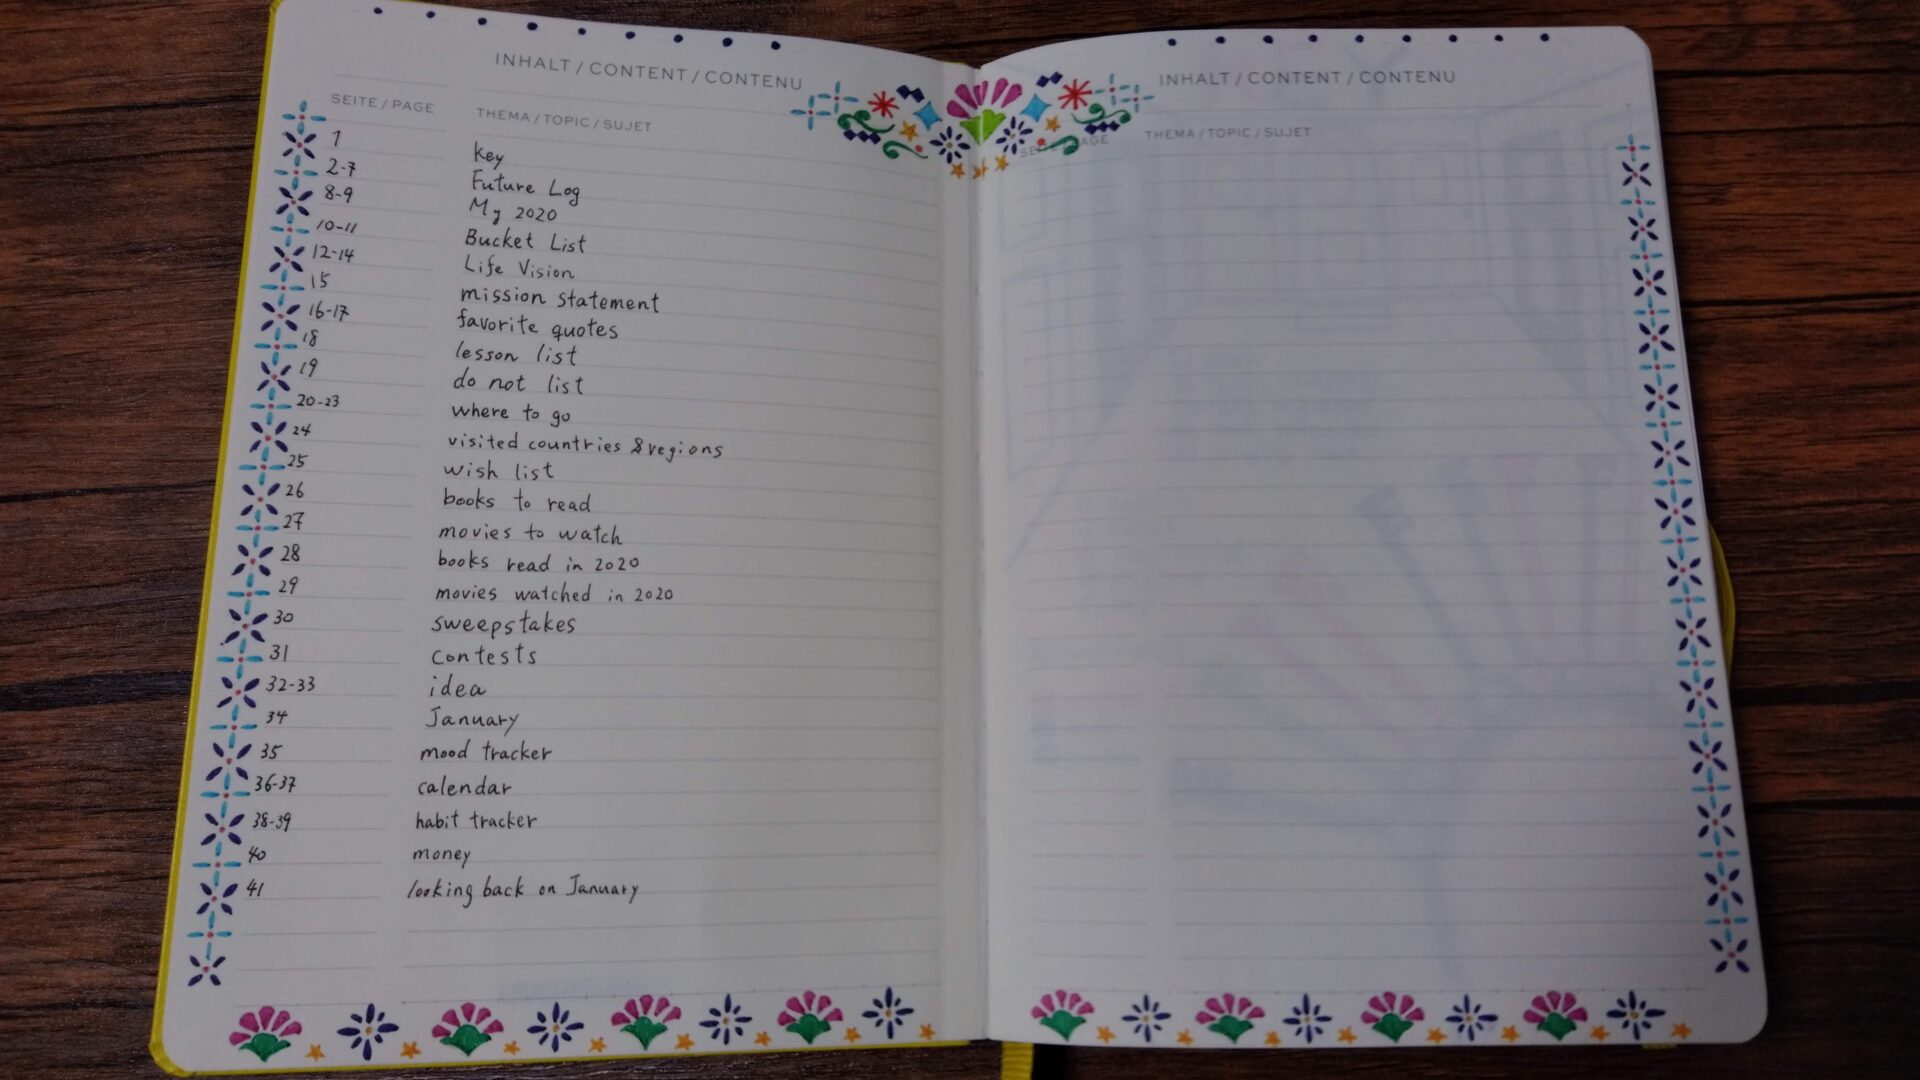 INHALT / CONTENT / CONTENU
SEITE / PAGE THEMA / TOPIC / SUJET
1 key
2-7 Future Log
8-9 My 2020
10-11 Bucket List
12-14 Life Vision
15 mission statement
16-17 favorite quotes
18 lesson list
19 do not list
20-23 where to go
24 visited countries & regions
25 wish list
26 books to read
27 movies to watch
28 books read in 2020
29 movies watched in 2020
30 sweepstakes
31 contests
32-33 idea
34 January
35 mood tracker
36-37 calendar
38-39 habit tracker
40 money
41 looking back on January
INHALT / CONTENT / CONTENU
SEITE / PAGE THEMA / TOPIC / SUJET